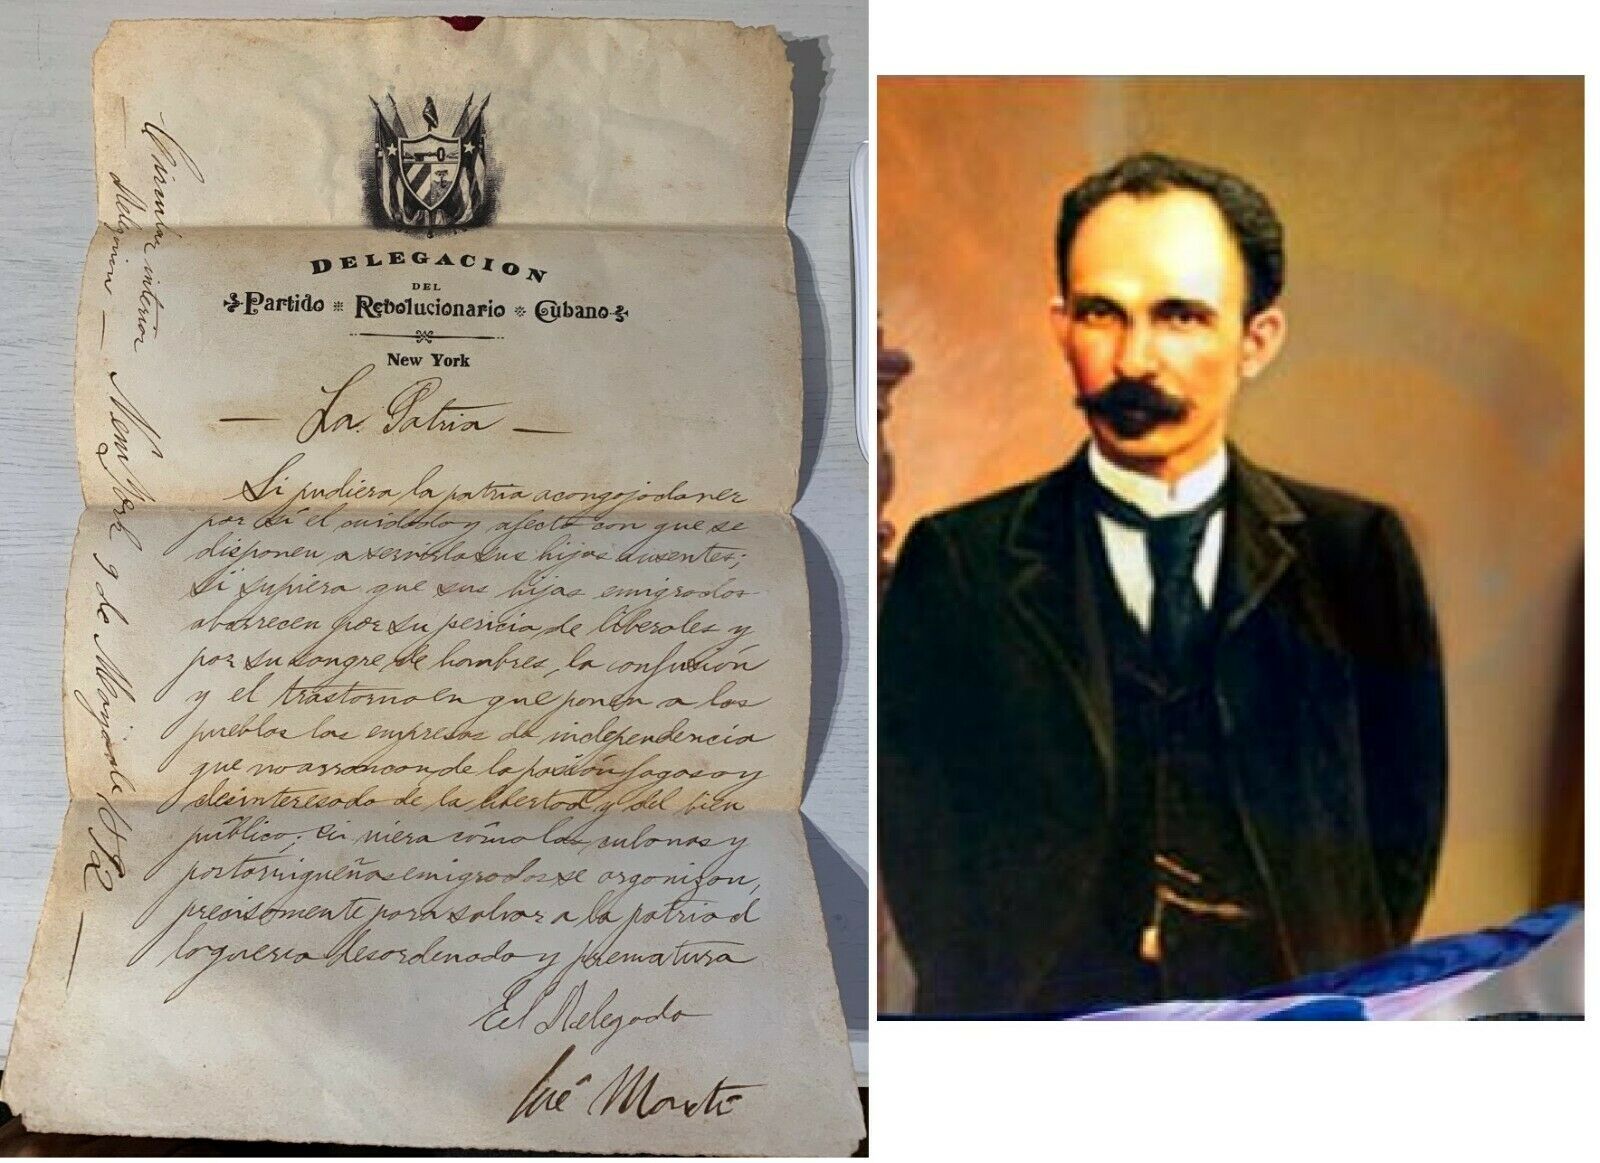 DELEGACION
DEL
Partido Revolucionario Cubano
New York
— La Patria —
Si pudiera la patria acongojada ver
por sí el cuidado y afecto con que se
disponen a servirla sus hijos ausentes;
si supiera que sus hijos emigrados
aborrecen por su pericia de liberales y
por su sangre de hombres, la confusión
y el trastorno en que ponen a los
pueblos las empresas de independencia
que no arrancan de la pasión fogosa y
desinteresada de la libertad y del bien
público; si viera cómo los cubanos y
portorriqueños emigrados se organizan,
precisamente para salvar a la patria d
la guerra desordenada y prematura
El Delegado
José Martí
Circular interior New York 9 de Mayo de 1892 —
— Delegacion —